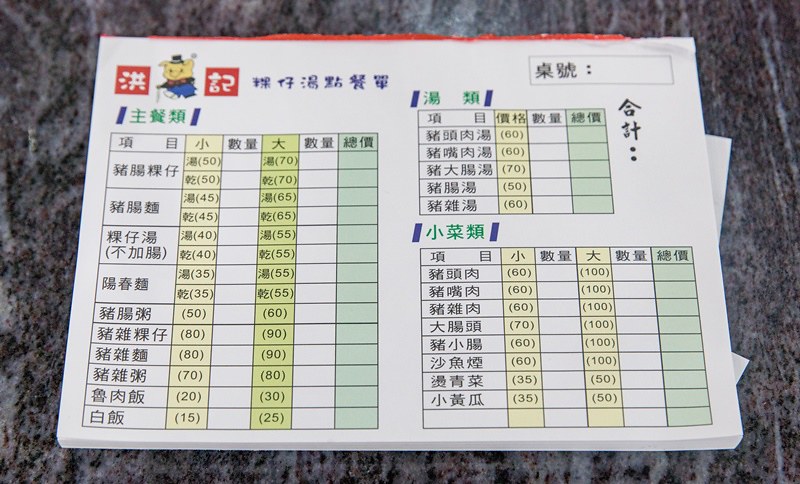 洪記 粿仔湯點餐單
桌號：
合計：
主餐類
項 目 小 數量 大 數量 總價
豬腸粿仔 湯(50) 湯(70)
乾(50) 乾(70)
豬腸麵 湯(45) 湯(65)
乾(45) 乾(65)
粿仔湯(不加腸) 湯(40) 湯(55)
乾(40) 乾(55)
陽春麵 湯(35) 湯(55)
乾(35) 乾(55)
豬腸粥 (50) (60)
豬雜粿仔 (80) (90)
豬雜麵 (80) (90)
豬雜粥 (70) (80)
魯肉飯 (20) (30)
白飯 (15) (25)
湯 類
項 目 價格 數量 總價
豬頭肉湯 (60)
豬嘴肉湯 (60)
豬大腸湯 (70)
豬腸湯 (50)
豬雜湯 (60)
小菜類
項 目 小 數量 大 數量 總價
豬頭肉 (60) (100)
豬嘴肉 (60) (100)
豬雜肉 (60) (100)
大腸頭 (70) (100)
豬小腸 (60) (100)
沙魚煙 (60) (100)
燙青菜 (35) (50)
小黃瓜 (35) (50)